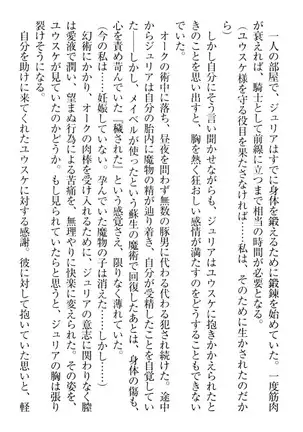 一人の部屋で、ジュリアはすでに身体を鍛えるために鍛錬を始めていた。一度筋肉
が衰えれば、騎士として前線に立つまで相当の時間が必要となる。
（ユウスケ様を守る役目を果たさなければ……私は、そのために生かされたのだか
ら……）
しかし自分にそう言い聞かせながら、ジュリアはユウスケに抱きかかえられたと
きのことを思い出すと、胸を熱く狂おしい感情が満たすのをどうすることもできず
にいた。
オークの術中に落ち、昼夜を問わず無数の豚男に代わる代わる犯され続けた。途中
からジュリアは自分の胎内に魔物の精が辿り着き、自分が受精したことを自覚してい
た――しかし、メイベルが使ったという蘇生の魔術で回復したあとは、身体の傷も、
心を責め苛んでいた『穢された』という感覚さえ、限りなく薄れていた。
（今の私は……妊娠していない。孕んでいた魔物の子は消えた……しかし……）
幻術にかかり、オークの肉棒を受け入れるために、ジュリアの意志に関わりなく膣
は愛液で潤い、望まぬ行為による苦痛を、無理やりに快楽に変えられた。その姿を、
ユウスケが見ていたのかどうか。もし見られていたらと思うと、ジュリアの胸は張り
裂けそうになる。
自分を助けに来てくれたユウスケに対する感謝。彼に対して抱いていた思いと、軽